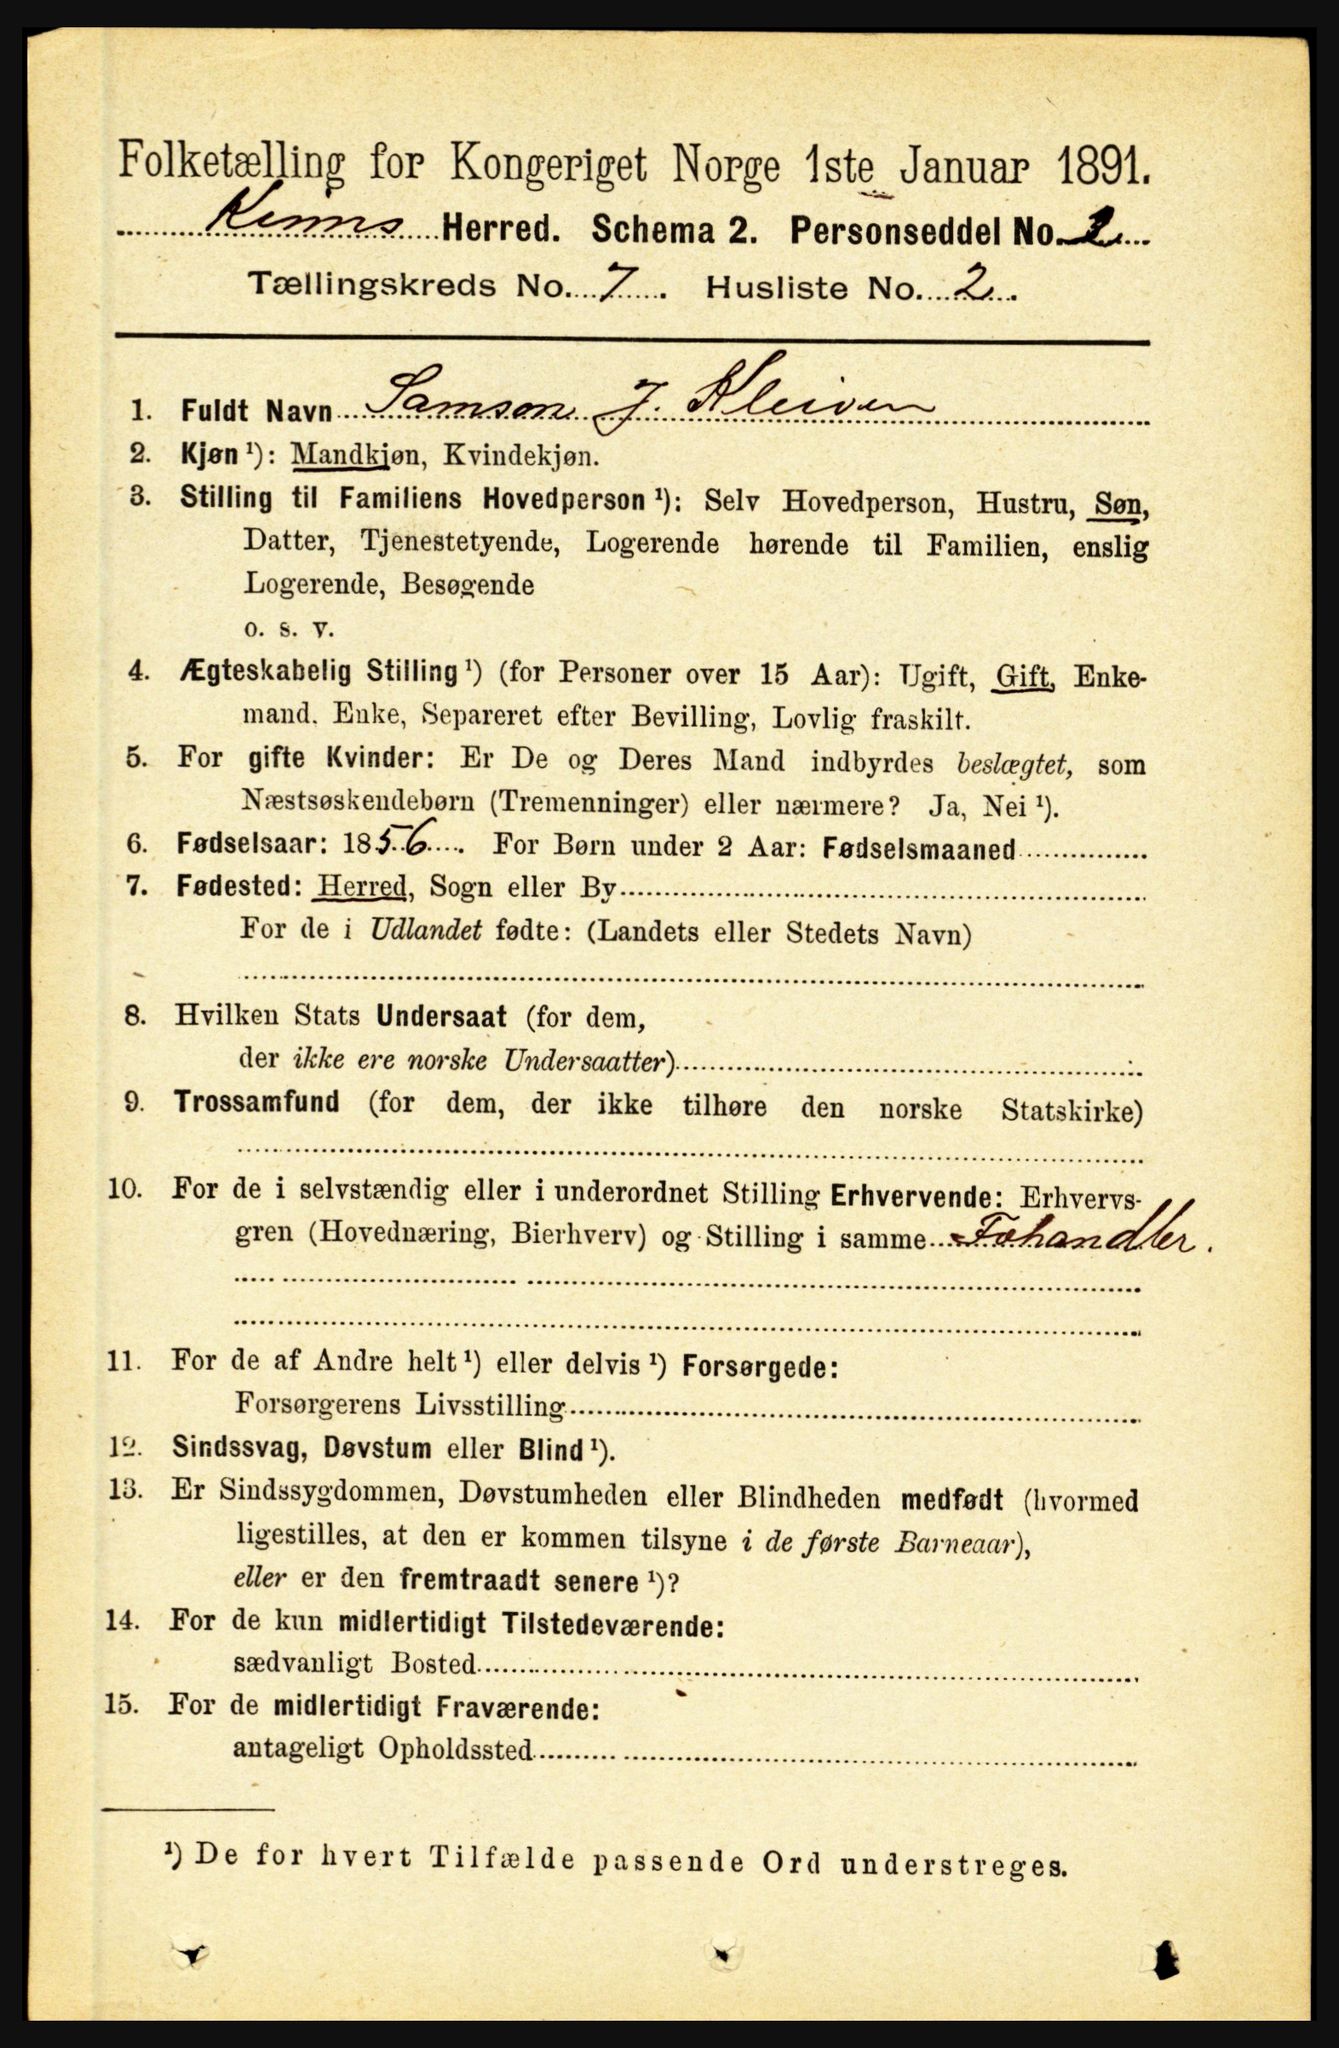 Folketælling for Kongeriget Norge 1ste Januar 1891.
Kinns Herred. Schema 2. Personseddel No. 2
Tællingskreds No. 7. Husliste No. 2.
1. Fuldt Navn Samson J. Kleiven
2. Kjøn ¹): Mandkjøn, Kvindekjøn.
3. Stilling til Familiens Hovedperson ¹): Selv Hovedperson, Hustru, Søn,
Datter, Tjenestetyende, Logerende hørende til Familien, enslig
Logerende, Besøgende
o. s. v.
4. Ægteskabelig Stilling ¹) (for Personer over 15 Aar): Ugift, Gift, Enke-
mand, Enke, Separeret efter Bevilling, Lovlig fraskilt.
5. For gifte Kvinder: Er De og Deres Mand indbyrdes beslægtet, som
Næstsøskendebørn (Tremenninger) eller nærmere? Ja, Nei ¹).
6. Fødselsaar: 1856. For Børn under 2 Aar: Fødselsmaaned
7. Fødested: Herred, Sogn eller By
For de i Udlandet fødte: (Landets eller Stedets Navn)
8. Hvilken Stats Undersaat (for dem,
der ikke ere norske Undersaatter)
9. Trossamfund (for dem, der ikke tilhøre den norske Statskirke)
10. For de i selvstændig eller i underordnet Stilling Erhvervende: Erhvervs-
gren (Hovednæring, Bierhverv) og Stilling i samme Fæhandler.
11. For de af Andre helt ¹) eller delvis ¹) Forsørgede:
Forsørgerens Livsstilling
12. Sindssvag, Døvstum eller Blind ¹).
13. Er Sindssygdommen, Døvstumheden eller Blindheden medfødt (hvormed
ligestilles, at den er kommen tilsyne i de første Barneaar),
eller er den fremtraadt senere ¹)?
14. For de kun midlertidigt Tilstedeværende:
sædvanligt Bosted
15. For de midlertidigt Fraværende:
antageligt Opholdssted
¹) De for hvert Tilfælde passende Ord understreges.